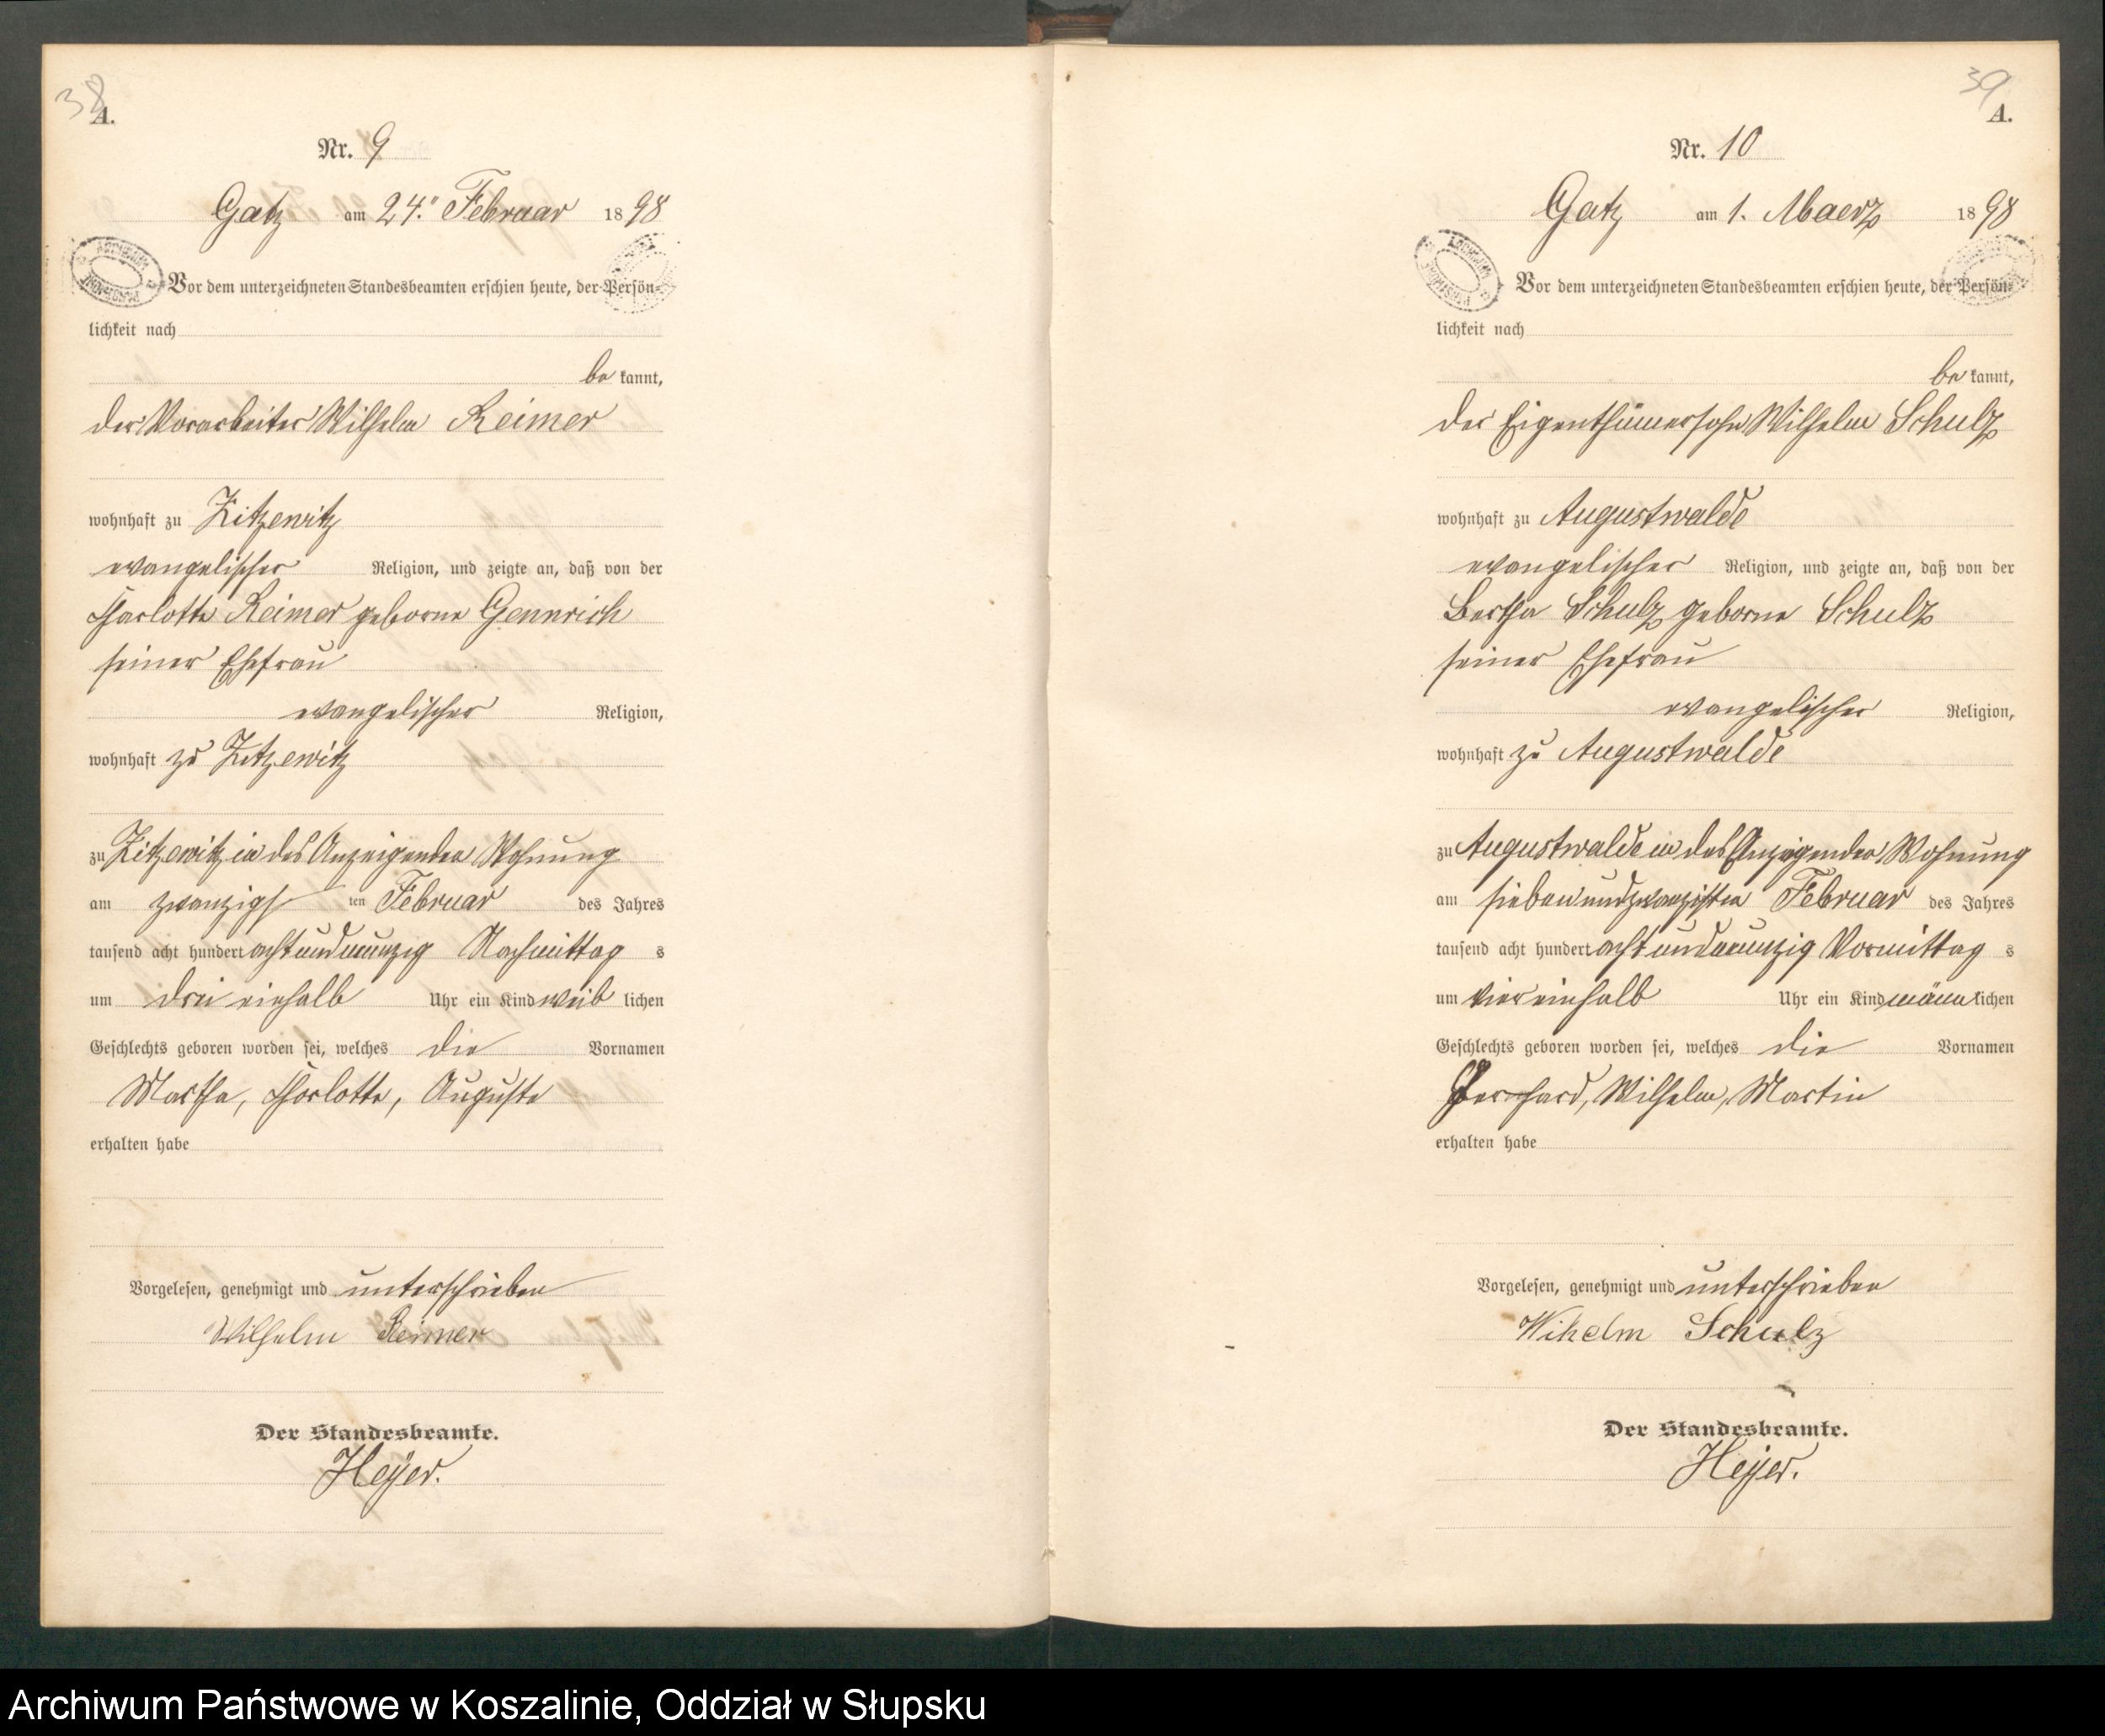 38
A.
Nr. 9
Gatz am 24. Februar 1898
Vor dem unterzeichneten Standesbeamten erschien heute, der Persön-
lichkeit nach
be kannt,
der Vorarbeiter Wilhelm Reimer
wohnhaft zu Zitzewitz
evangelischer Religion, und zeigte an, daß von der
Charlotte Reimer geborne Gennrich
seiner Ehefrau
evangelischer Religion,
wohnhaft zu Zitzewitz
zu Zitzewitz in des Anzeigenden Wohnung
am zwanzigs ten Februar des Jahres
tausend acht hundert achtundneunzig Nachmittag s
um drei einhalb Uhr ein Kind weib lichen
Geschlechts geboren worden sei, welches die Vornamen
Martha, Charlotte, Auguste
erhalten habe
Vorgelesen, genehmigt und unterschrieben
Wilhelm Reimer
Der Standesbeamte.
Heyer.
39
A.
Nr. 10
Gatz am 1. Maerz 1898
Vor dem unterzeichneten Standesbeamten erschien heute, der Persön-
lichkeit nach
be kannt,
der Eigenthümersohn Wilhelm Schulz
wohnhaft zu Augustwalde
evangelischer Religion, und zeigte an, daß von der
Bertha Schulz geborne Schulz
seiner Ehefrau
evangelischer Religion,
wohnhaft zu Augustwalde
zu Augustwalde in des Anzeigenden Wohnung
am siebenundzwanzigsten Februar des Jahres
tausend acht hundert achtundneunzig Vormittag s
um vier einhalb Uhr ein Kind männ lichen
Geschlechts geboren worden sei, welches die Vornamen
Gerhard, Wilhelm, Martin
erhalten habe
Vorgelesen, genehmigt und unterschrieben
Wihelm Schulz
Der Standesbeamte.
Heyer.
Archiwum Państwowe w Koszalinie, Oddział w Słupsku